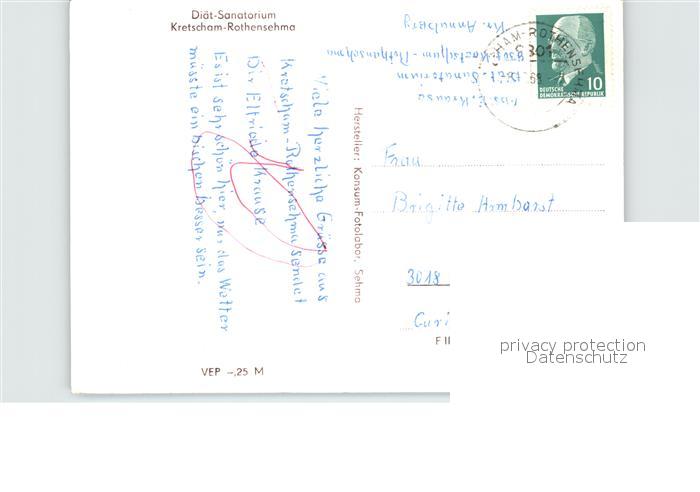 Diät-Sanatorium
Kretscham-Rothensehma
Viele herzliche Grüsse aus
Kretscham-Rothensehma sendet
Dir Elfriede Krause
Es ist sehr schön hier, nur das Wetter
müsste ein bischen besser sein.
VEP -,25 M
Hersteller: Konsum-Fotolabor, Sehma
E. Krause
Diät. Sanatorium
Kretscham-Rothensehma
Kr. Annaberg
HAM-ROTHENSEHMA
9301
10
DEUTSCHE
DEMOKRATISCHE REPUBLIK
Frau
Brigitte Armbarst
3018
F II
privacy protection
Datenschutz